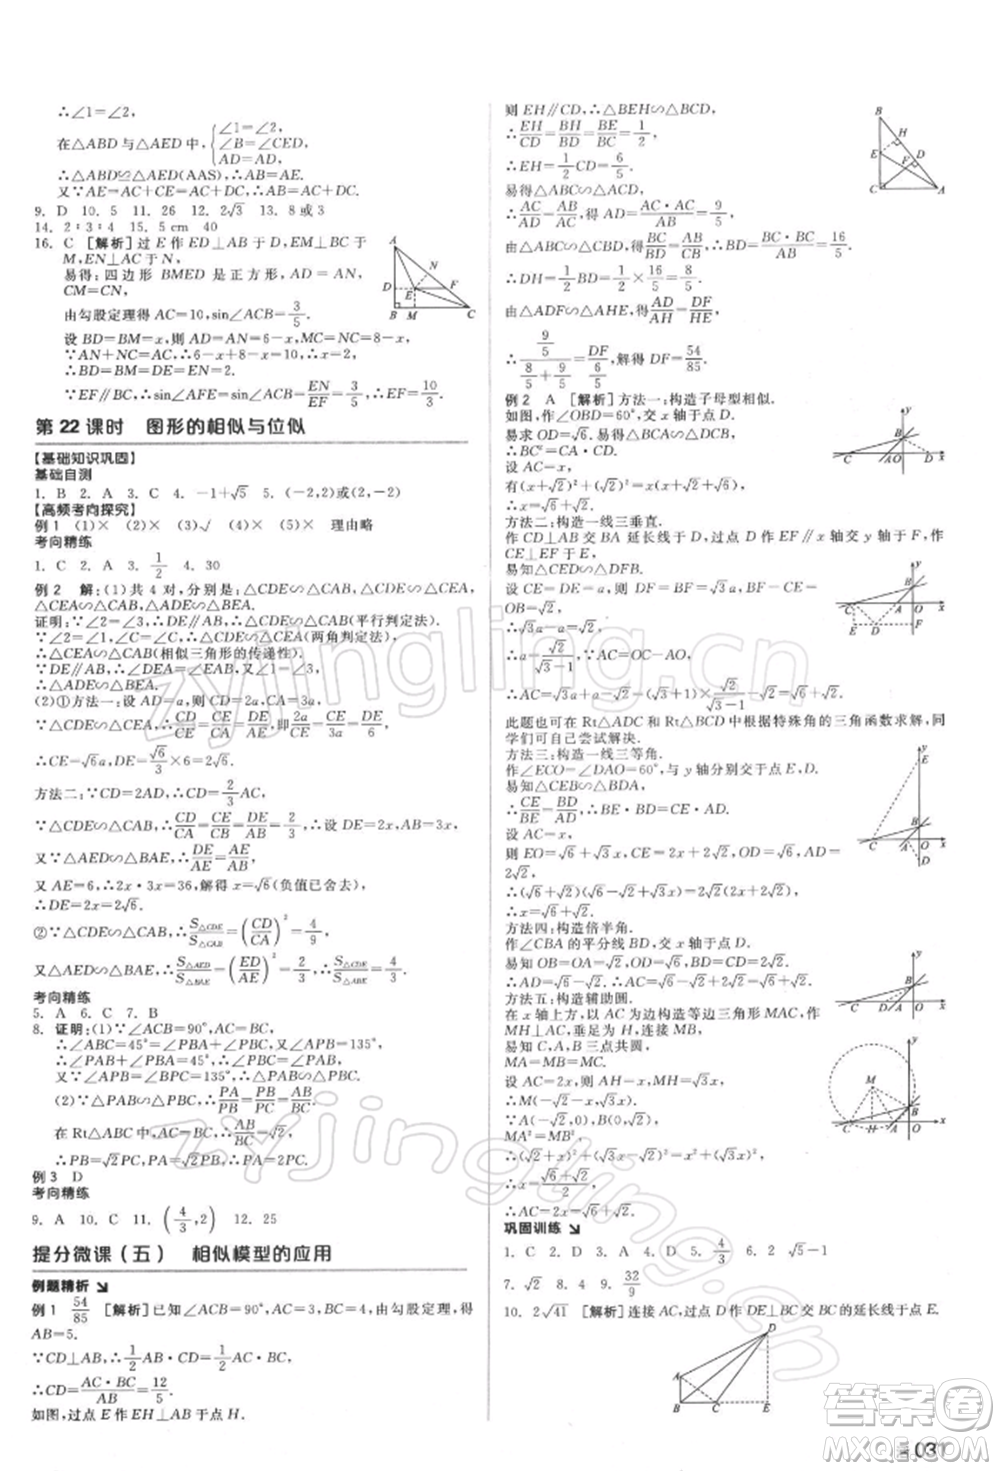 ∴∠1=∠2,
在△ABD 与△AED 中,{∠1=∠2, ∠B=∠CED, AD=AD,
∴△ABD≌△AED(AAS),∴AB=AE.
又∵AE=AC+CE=AC+DC,∴AB=AC+DC.
9. D 10. 5 11. 26 12. 2√3 13. 8或3
14. 2∶3∶4 15. 5 cm 40
16. C [解析]过 E 作 ED⊥AB 于 D,EM⊥BC 于
M,EN⊥AC 于 N.
易得:四边形 BMED 是正方形,AD=AN,
CM=CN.
由勾股定理得 AC=10,sin∠ACB=3/5.
设 BD=BM=x,∴AN=AD=6-x,MC=NC=8-x,
∵AN+NC=AC,∴6-x+8-x=10,
∴x=2,∴EN=BD=2.
∵EF∥BC,∴sin∠AFE=sin∠ACB=EN/EF=3/5,∴EF=10/3.
第 22 课时 图形的相似与位似
【基础知识巩固】
基础自测
1. B 2. A 3. C 4. -1+√5 5. (-2,2)或(2,-2)
【高频考向探究】
例 1 (1)× (2)× (3)√ (4)× (5)× (6)× 理由略
考向精练
1. C 2. A 3. 1/2 4. 30
例 2 解:(1)共 4 对,分别是:△CDE∽△CAB,△CDE∽△CEA,
△CEA∽△CAB,△ADE∽△BEA.
证明:∵∠2=∠B,∴DE∥AB,∴△CDE∽△CAB(平行判定法).
∵∠2=∠1,∠C=∠C,∴△CDE∽△CEA(两角判定法),
∴△CEA∽△CAB(相似三角形的传递性).
∵DE∥AB,∴∠DEA=∠EAB,又∠1=∠B,∴△ADE∽△BEA.
(2)①方法一:设 AD=a,则 CD=2a,CA=3a.
∵△CDE∽△CEA,∴CD/CE=CE/CA,即2a/CE=CE/3a,
∴CE=√6a,∴DE=√6/3×6=2√6.
方法二:∵CD=2AD,∴CD=2/3AC,
∵△CDE∽△CAB,∴CD/CA=CE/CB=DE/AB=2/3,∴设 DE=2x,AB=3x,
又∵△AED∽△BAE,∴DE/AE=AE/AB,
又 AE=6,∴2x·3x=36,解得 x=√6(负值已舍去),
∴DE=2x=2√6.
②∵△CDE∽△CAB,∴S△CDE/S△CAB=(CD/CA)²=4/9,
又∵△AED∽△BAE,∴S△AED/S△BAE=(ED/AE)²=(2√6/6)²=2/3.
考向精练
5. A 6. C 7. B
8. 证明:(1)∵∠ACB=90°,AC=BC,
∴∠ABC=45°=∠PBA+∠PBC,∵∠APB=135°,
∴∠PAB+∠PBA=45°,∴∠PBC=∠PAB,
又∵∠APB=∠BPC=135°,∴△PAB∽△PBC.
(2)∵△PAB∽△PBC,∴PA/PB=PB/PC=AB/BC,
在 Rt△ABC 中,AC=BC,∴AB/BC=√2,
∴PB=√2PC,PA=√2PB,∴PA=2PC.
例 3 D
考向精练
9. A 10. C 11. (4/3,2) 12. 25
提分微课(五) 相似模型的应用
例题精析
例 1 54/85 [解析]已知∠ACB=90°,AC=3,BC=4,由勾股定理,得
AB=5.
∵CD⊥AB,∴1/2AC·BC=1/2AB·CD,
∴CD=AC·BC/AB=12/5.
如图,过点 E 作 EH⊥AB 于点 H.
则 EH∥CD,∴△BEH∽△BCD,
∴EH/CD=BH/BD=BE/BC=1/2,
∴EH=1/2CD=6/5.
易得△ACD∽△ABC,
∴AD/AC=AC/AB,得 AD=AC·AC/AB=9/5.
由△BCD∽△BAC,得BC/BD=BA/BC,∴BD=16/5,
∴DH=1/2BD=1/2×16/5=8/5.
由△ADF∽△AHE,得AD/AH=DF/HE,
∴(9/5)/(8/5+9/5)=DF/(6/5),解得 DF=54/85.
例 2 A [解析]方法一:构造子母型相似.
如图,作∠OBD=60°,交 x 轴于点 D,
易求 OD=√6,易得△BCA∽△DCB,
∴BC²=CA·CD.
设 AC=x,
有(x+√2)²+(√2)²=x(x+√2+√6),
∴x=√6+√2.
方法二:构造一线三垂直.
作 CD⊥AB 交 BA 延长线于点 D,过点 D 作 DF∥x 轴交 y 轴于 F,作
CE⊥EF 于 E.
易知△CED∽△DFB.
设 CE=OF=a,∵∠CBD=30°,则 DF=√3a,BF=√3DE,CE=
OB=√2,
∴√3a-a=√2,
∴a=√2/(√3-1),
∴AC=OC-AO,
∴AC=√2+(√3+1)a-√2=(√3+1)×√2/(√3-1)=√6+2√2.
此题也可在 Rt△ADC 和 Rt△BCD 中根据特殊角的三角函数求解,同
学们可自己尝试解决.
方法三:构造一线三等角.
作∠ECO=∠DAO=60°,与 y 轴分别交于点 E,D,
易知△CEB∽△BDA,
∴CE/BE=BD/AD,
设 AC=x,
则 EO=√6+√3x,CE=2x+2√2,BE=√6+√3x-√2,BD=√2+√6,AD=
2√2,
∴(√6+√3x-√2)(√2+√6)=2√2(2x+2√2),
∴x=√6+√2.
方法四:构造倍半角.
作∠CBA 的平分线 BD,交 x 轴于点 D.
易知 OB=OA=√2,∴OD=√6,∴AD=√6-√2.
方法五:构造辅助圆.
在 x 轴上方,以 AC 为边构造等边三角形 MAC,作
MH⊥AC,垂足为 H,连接 BM,
易知 C,A,B 三点共圆,
MA=MB=MC.
设 AC=2x,∴CH=HA=x,MH=√3x,
∴M(-√2-x,√3x).
∵A(-√2,0),B(0,√2),
MA²=MB²,
∴x=(√6+√2)/2,
∴AC=√6+√2.
巩固训练
1. C 2. D 3. A 4. D 5. 4/3 6. √3
7. √2 8. 4 9. 32/9
10. 2√41 [解析]连接 AC,过点 D 作 DE⊥BC 交 BC 的延长线于点 E.
zyjingling.cn
答案圈
MXQE.COM
031